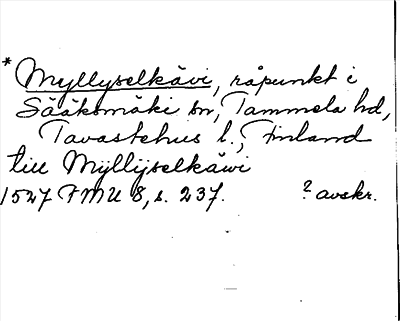 * Myllyselkävi, råpunkt i
Sääksmäki sn, Tammela hd,
Tavastehus l., Finland
till Mÿllÿselkäwi
1527 FMU 8, s. 237. ? avskr.